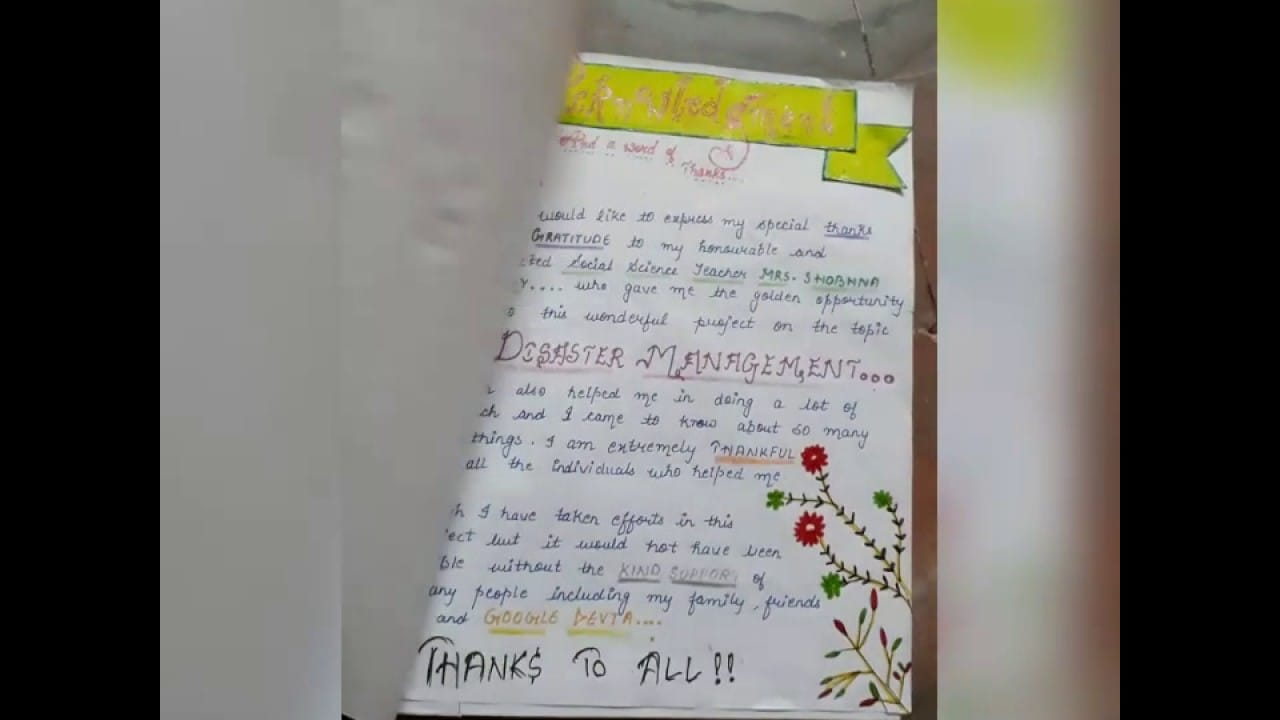 cknowledgment
And a word of
Thanks...
would like to express my special thanks
GRATITUDE to my honourable and
ted Social Science Teacher MRS. SHOBHNA
Y.... who gave me the golden opportunity
o this wonderful project on the topic
DISASTER MANAGEMENT...
also helped me in doing a lot of
ch and I came to know about so many
things. I am extremely THANKFUL
all the individuals who helped me
h I have taken efforts in this
ject but it would not have been
ble without the KIND SUPPORT of
any people including my family, friends
and GOOGLE DEVTA....
THANKS TO ALL!!